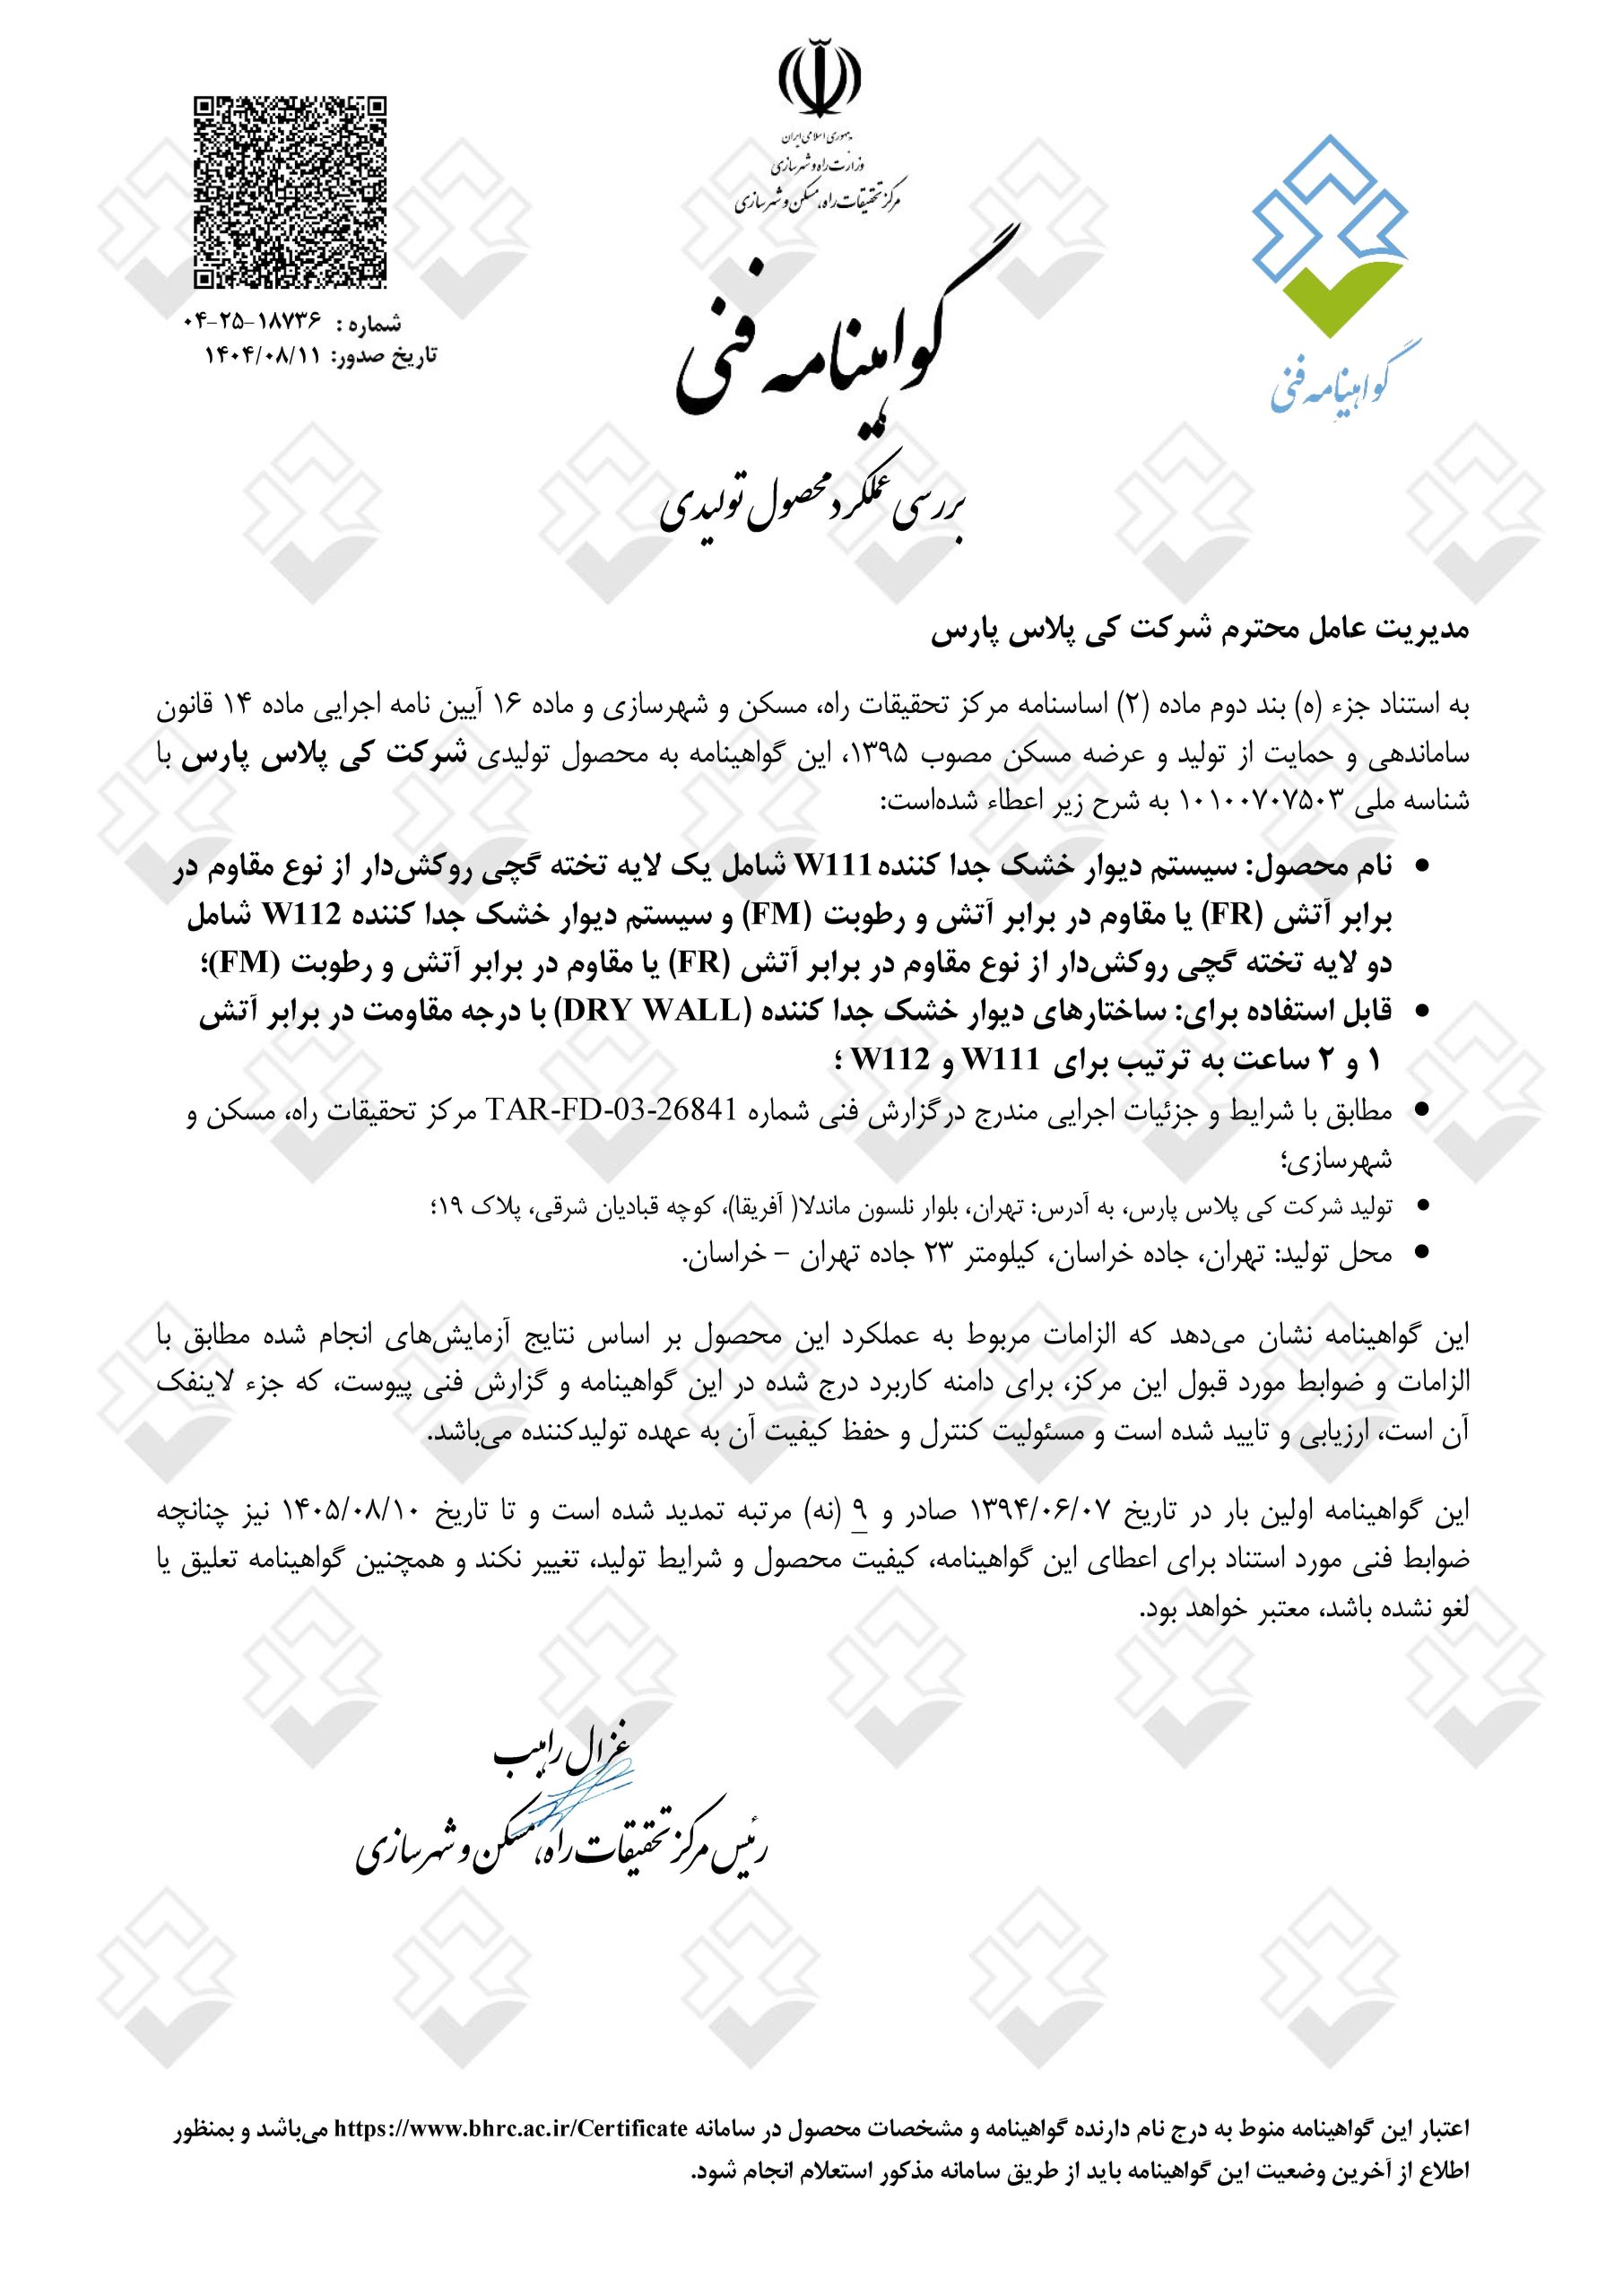 جمهوری اسلامی ایران
وزارت راه و شهرسازی
مرکز تحقیقات راه، مسکن و شهرسازی
گواهینامه فنی
گواهینامه فنی
شماره : ۱۸۷۳۶-۲۵-۰۴
تاریخ صدور: ۱۴۰۴/۰۸/۱۱
بررسی عملکرد محصول تولیدی
مدیریت عامل محترم شرکت کی پلاس پارس
به استناد جزء (ه) بند دوم ماده (۲) اساسنامه مرکز تحقیقات راه، مسکن و شهرسازی و ماده ۱۶ آیین نامه اجرایی ماده ۱۴ قانون
ساماندهی و حمایت از تولید و عرضه مسکن مصوب ۱۳۹۵، این گواهینامه به محصول تولیدی شرکت کی پلاس پارس با
شناسه ملی ۱۰۱۰۰۷۰۷۵۰۳ به شرح زیر اعطاء شده‌است:
• نام محصول: سیستم دیوار خشک جدا کننده W111 شامل یک لایه تخته گچی روکش‌دار از نوع مقاوم در
برابر آتش (FR) یا مقاوم در برابر آتش و رطوبت (FM) و سیستم دیوار خشک جدا کننده W112 شامل
دو لایه تخته گچی روکش‌دار از نوع مقاوم در برابر آتش (FR) یا مقاوم در برابر آتش و رطوبت (FM)؛
• قابل استفاده برای: ساختارهای دیوار خشک جدا کننده (DRY WALL) با درجه مقاومت در برابر آتش
۱ و ۲ ساعت به ترتیب برای W111 و W112 ؛
• مطابق با شرایط و جزئیات اجرایی مندرج درگزارش فنی شماره TAR-FD-03-26841 مرکز تحقیقات راه، مسکن و
شهرسازی؛
• تولید شرکت کی پلاس پارس، به آدرس: تهران، بلوار نلسون ماندلا( آفریقا)، کوچه قبادیان شرقی، پلاک ۱۹؛
• محل تولید: تهران، جاده خراسان، کیلومتر ۲۳ جاده تهران – خراسان.
این گواهینامه نشان می‌دهد که الزامات مربوط به عملکرد این محصول بر اساس نتایج آزمایش‌های انجام شده مطابق با
الزامات و ضوابط مورد قبول این مرکز، برای دامنه کاربرد درج شده در این گواهینامه و گزارش فنی پیوست، که جزء لاینفک
آن است، ارزیابی و تایید شده است و مسئولیت کنترل و حفظ کیفیت آن به عهده تولیدکننده می‌باشد.
این گواهینامه اولین بار در تاریخ ۱۳۹۴/۰۶/۰۷ صادر و ۹ (نه) مرتبه تمدید شده است و تا تاریخ ۱۴۰۵/۰۸/۱۰ نیز چنانچه
ضوابط فنی مورد استناد برای اعطای این گواهینامه، کیفیت محصول و شرایط تولید، تغییر نکند و همچنین گواهینامه تعلیق یا
لغو نشده باشد، معتبر خواهد بود.
غزال راهب
رئیس مرکز تحقیقات راه، مسکن و شهرسازی
اعتبار این گواهینامه منوط به درج نام دارنده گواهینامه و مشخصات محصول در سامانه https://www.bhrc.ac.ir/Certificate می‌باشد و بمنظور
اطلاع از آخرین وضعیت این گواهینامه باید از طریق سامانه مذکور استعلام انجام شود.